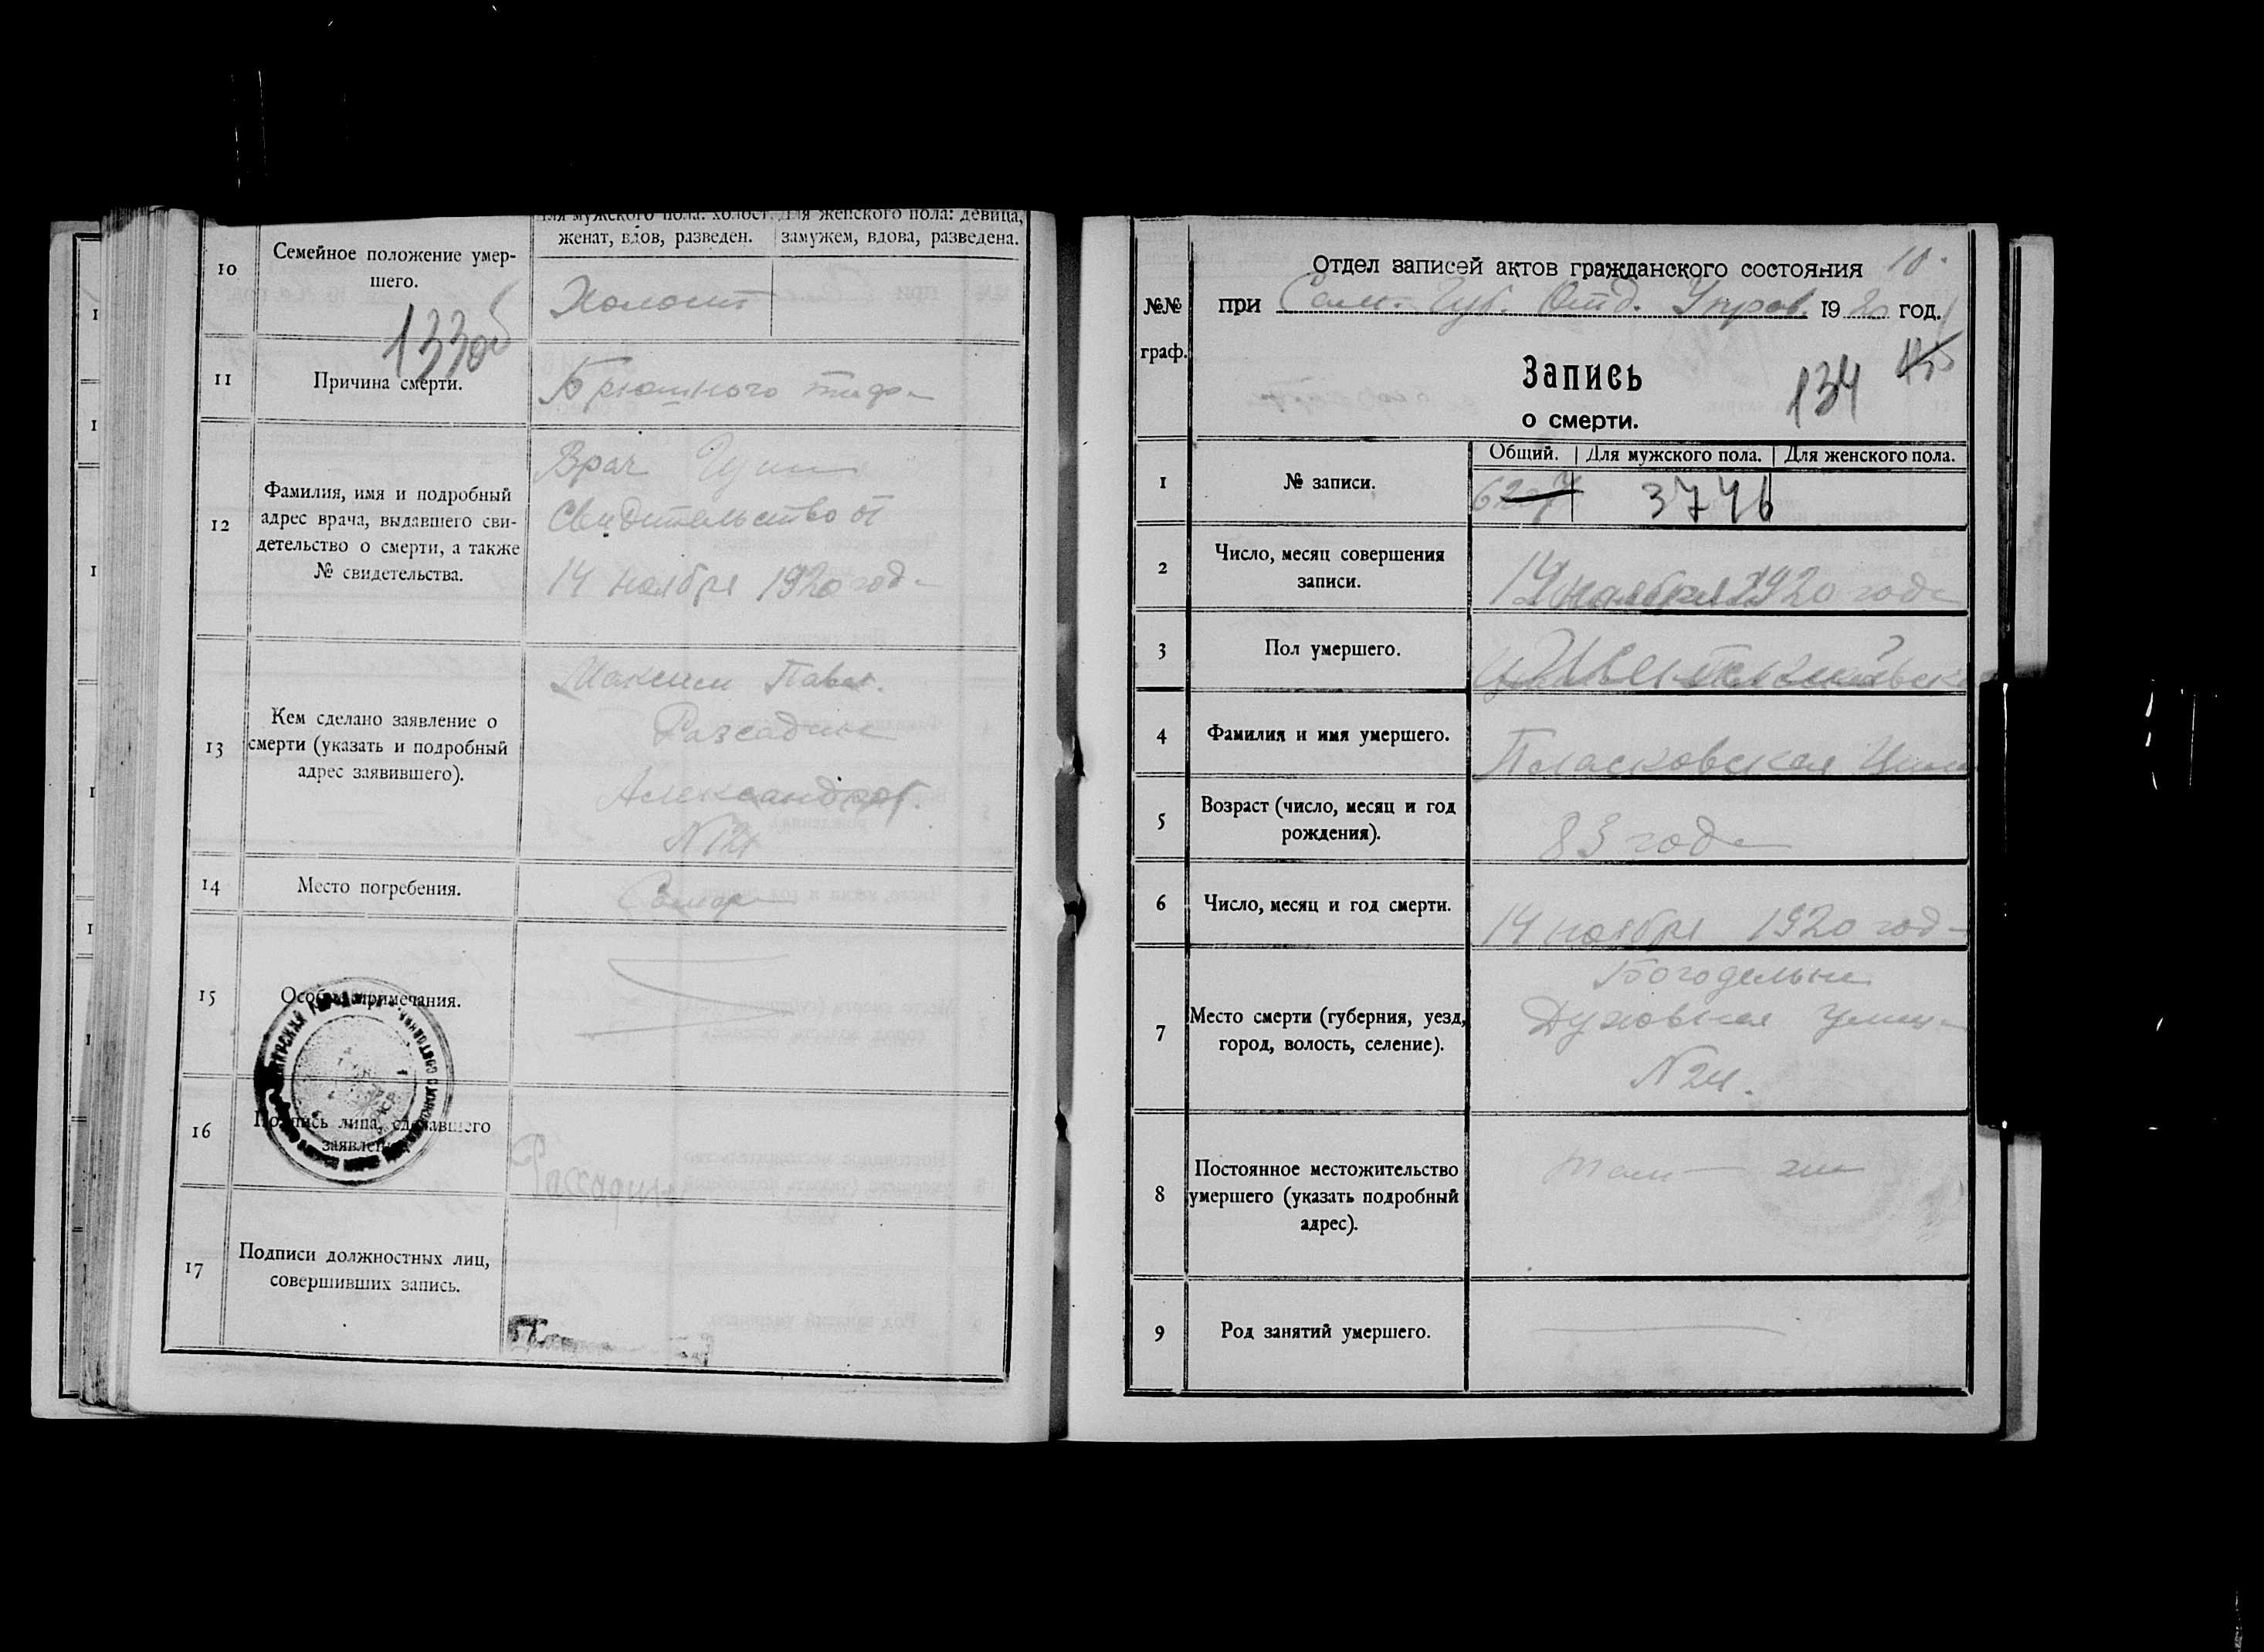 для мужского пола: холост, | Для женского пола: девица,
женат, вдов, разведен. | замужем, вдова, разведена.
10
Семейное положение умер-
шего.
Холост
133об
11
Причина смерти.
Брюшного тифа
12
Фамилия, имя и подробный
адрес врача, выдавшего сви-
детельство о смерти, а также
№ свидетельства.
Врач
Свидетельство от
14 ноября 1920 года
13
Кем сделано заявление о
смерти (указать и подробный
адрес заявившего).
Максим Павл.
Александров.
14
Место погребения.
Самара
15
Особые примечания.
16
Подпись лица, сделавшего
заявление
17
Подписи должностных лиц,
совершивших запись.
№№
граф.
Отдел записей актов гражданского состояния
10.
при Сам. Губ. Отд. Управ. 1920 год.
Запись
134
о смерти.
1
№ записи.
Общий. | Для мужского пола. | Для женского пола.
3746
2
Число, месяц совершения
записи.
14 ноября 1920 года
3
Пол умершего.
4
Фамилия и имя умершего.
Пласковская
5
Возраст (число, месяц и год
рождения).
83 года
6
Число, месяц и год смерти.
14 ноября 1920 года
7
Место смерти (губерния, уезд,
город, волость, селение).
Богодельня
Духовная улица
№ 24.
8
Постоянное местожительство
умершего (указать подробный
адрес).
там же
9
Род занятий умершего.